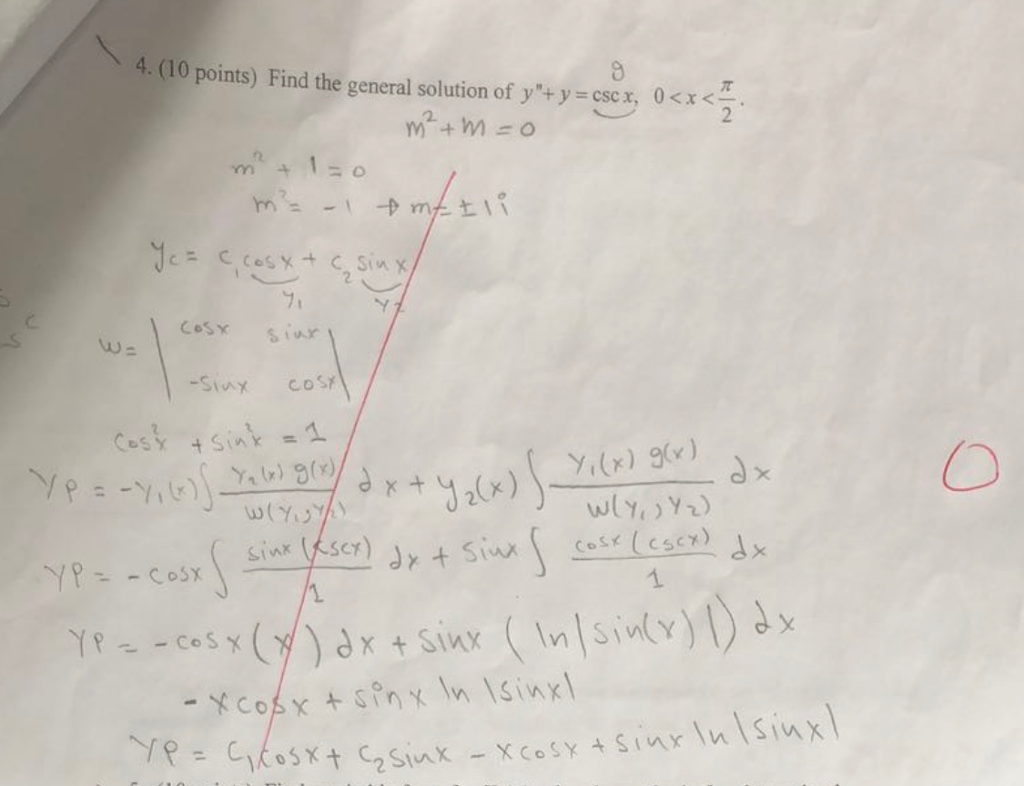 g
4. (10 points) Find the general solution of y"+ y = csc x, 0 < x < π/2.
m² + m = 0
m² + 1 = 0
m² = -1 → m = ± 1i
yc = c₁ cosx + c₂ sinx
y₁ y₂
S C
S
W = | cosx sinx |
| -sinx cosx |
cos²x + sin²x = 1
YP = -y₁(x) ∫ y₂(x) g(x) / W(y₁, y₂) dx + y₂(x) ∫ y₁(x) g(x) / W(y₁, y₂) dx
YP = - cosx ∫ sinx (cscx) / 1 dx + sinx ∫ cosx (cscx) / 1 dx
YP = - cosx (x) dx + sinx ( ln|sin(x)|) dx
- xcosx + sinx ln |sinx|
YP = C₁cosx + C₂ sinx - xcosx + sinx ln |sinx|
0